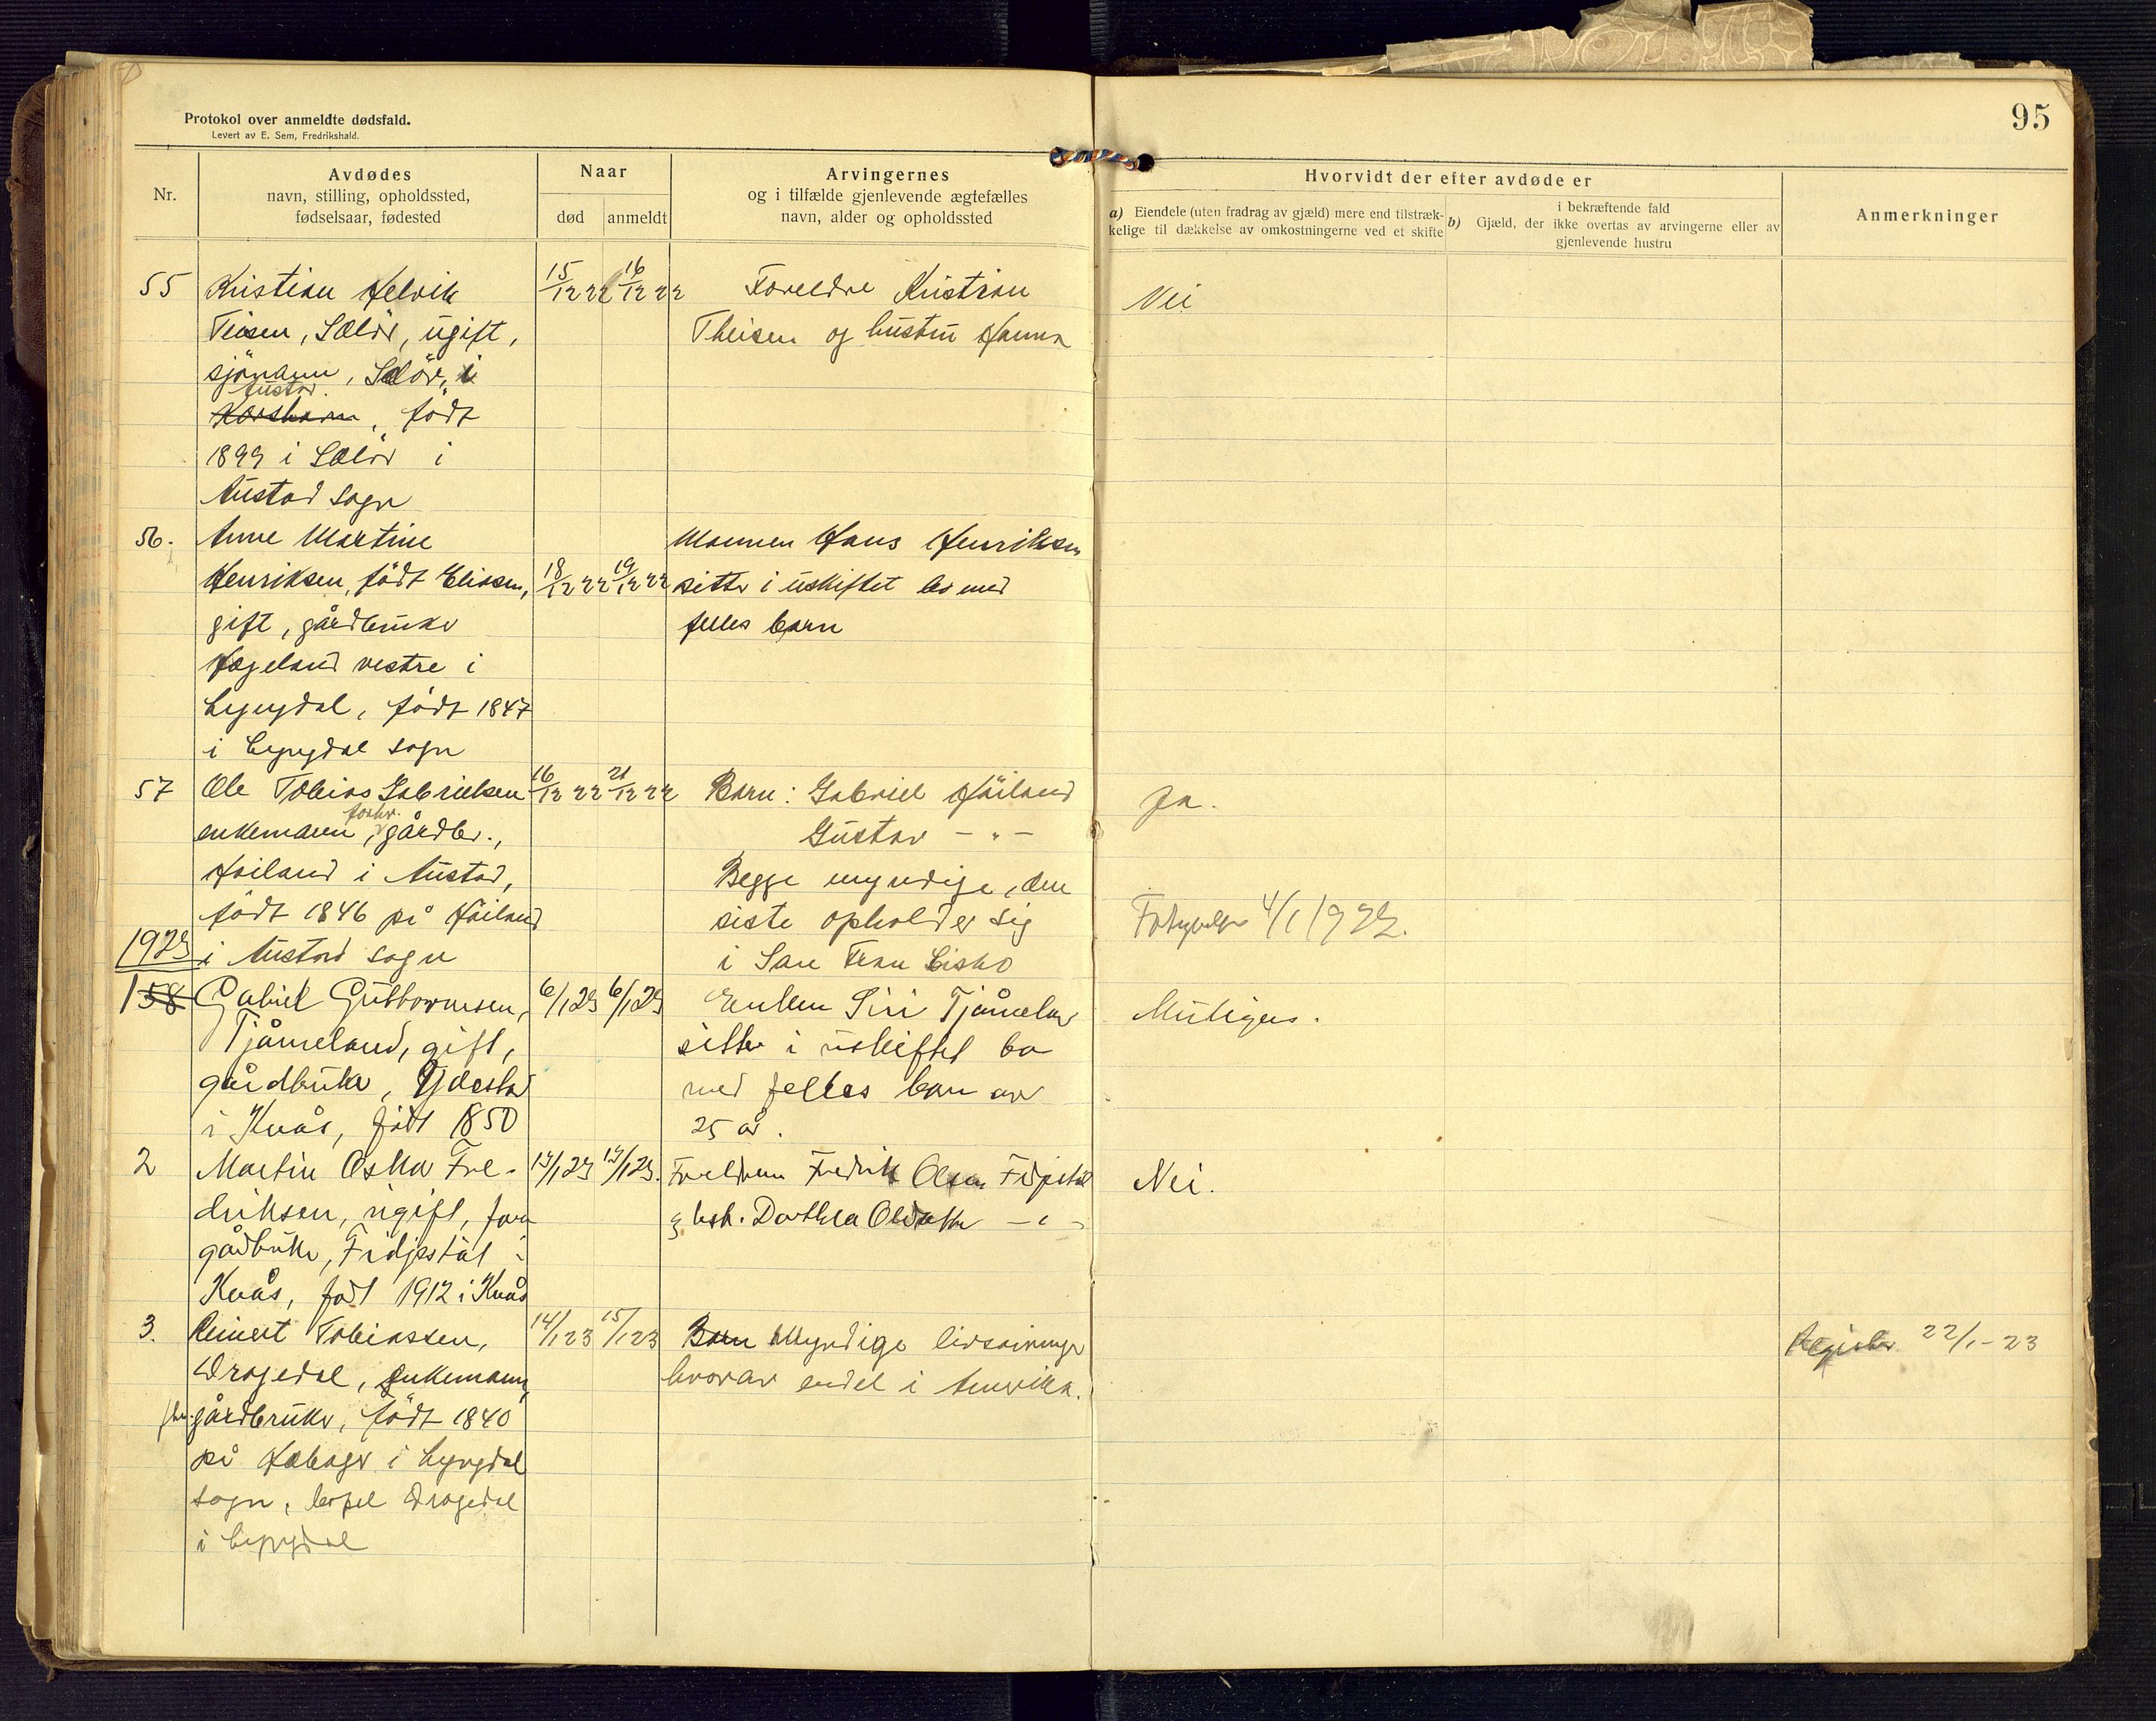 95
Protokol over anmeldte dødsfald.
Levert av E. Sem, Fredrikshald.
Nr.
Avdødes
navn, stilling, opholdssted,
fødselsaar, fødested
Naar
død
anmeldt
Arvingernes
og i tilfælde gjenlevende ægtefælles
navn, alder og opholdssted
Hvorvidt der efter avdøde er
a) Eiendele (uten fradrag av gjæld) mere end tilstræk-
kelige til dækkelse av omkostningerne ved et skifte
b) Gjæld, der i bekræftende fald
ikke overtas av arvingerne eller av
gjenlevende hustru
Anmerkninger
55 Kristian Helvik 15/12 22 16/12 22 Foreldre Kristian Nei
Teisen, Selör, ugift, Theisen og hustru Hanna
sjömann, Selör, i
Austad
Korshavn, födt
1899 i Selör i
Austad sogn
56. Anne Martine Mannen Hans Henriksen
Henriksen, födt Eliasen, 18/12 22 19/12 22 sitter i uskiftet bo med
gift, gårdbruker felles barn
Hægeland vestre i
Lyngdal, födt 1847
i Lyngdal sogn
57 Ole Tobias Gabrielsen 16/12 22 21/12 22 Barn: Gabriel Höiland Ja.
forhv.
enkemann, gårdbr., Gustav - " -
Höiland i Austad, Begge myndige, den
födt 1846 på Höiland siste opholder sig 4/1 1923.
i Austad sogn i San Fran Cisko
1923
1 58 Gabriel Guttormsen, 6/1 23 6/1 23 Enken Siri Tjåmeland Muligens.
Tjåmeland, gift, sitter i uskiftet bo
gårdbruker, i Kvås, födt 1850 med felles barn over
25 år.
2 Martin Oskar Fre- 14/1 23 14/1 23. Foreldrene Fredrik Olsen Fidjestöl Nei.
driksen, ugift, gårdbruker, Fidjestöl i & hst. Dorthea
Kvås, födt 1912 i Kvås
3. Reinert Tobiassen, 14/1 23 15/1 23 Barn Myndige livsarvinger 22/1-23
Dragedal, enkemann, hvorav endel i Amerika.
fhv. gårdbruker, födt 1840
på i Lyngdal
sogn, bopel Dragedal
i Lyngdal